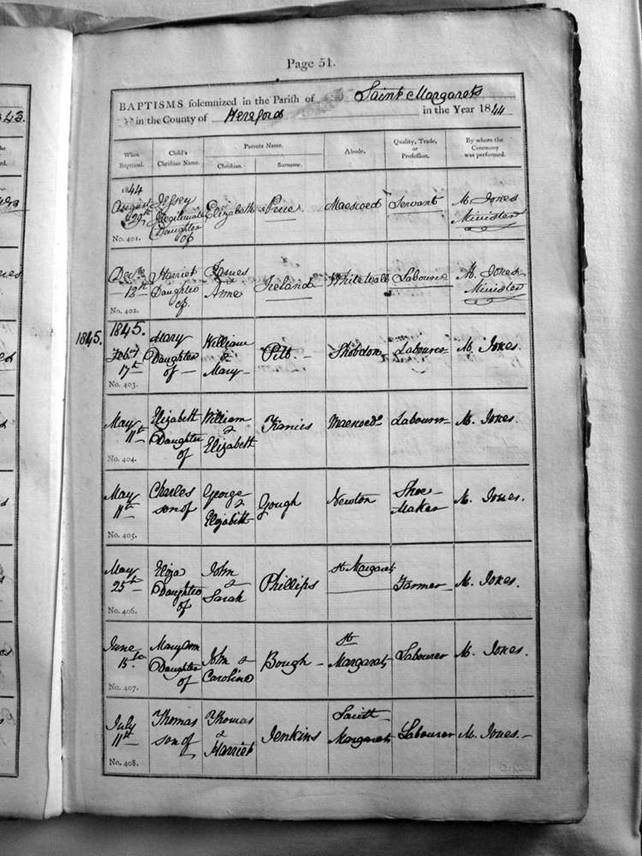 Page 51.
BAPTISMS solemnized in the Parish of Saint Margarets
in the County of Hereford in the Year 1844
When Baptized. Child's Christian Name. Parents Name. Christian. Surname. Abode. Quality, Trade, or Profession. By whom the Ceremony was performed.
1844
August 29th Illegitimate Daughter of Elizabeth Maescoed Servant M. Jones Minister
No. 401.
Decr 13th Harriet Daughter of James & Anne Ireland Whitewall Labourer M. Jones Minister
No. 402.
1845.
1845.
Feby 17th Mary Daughter of William & Mary Shobdon Labourer M. Jones.
No. 403.
May 11th Elizabeth Daughter of William & Elizabeth Francis Maescoed Labourer M. Jones.
No. 404.
May 11th Charles son of George & Elizabeth Gough Newton Shoe-Maker M. Jones.
No. 405.
May 25th Eliza Daughter of John & Sarah Phillips St Margarets Farmer M. Jones.
No. 406.
June 15th Mary Ann Daughter of John & Caroline Bough St Margarets Labourer M. Jones.
No. 407.
July 11th Thomas son of Thomas & Harriet Jenkins Saint Margarets Labourer M. Jones.
No. 408.